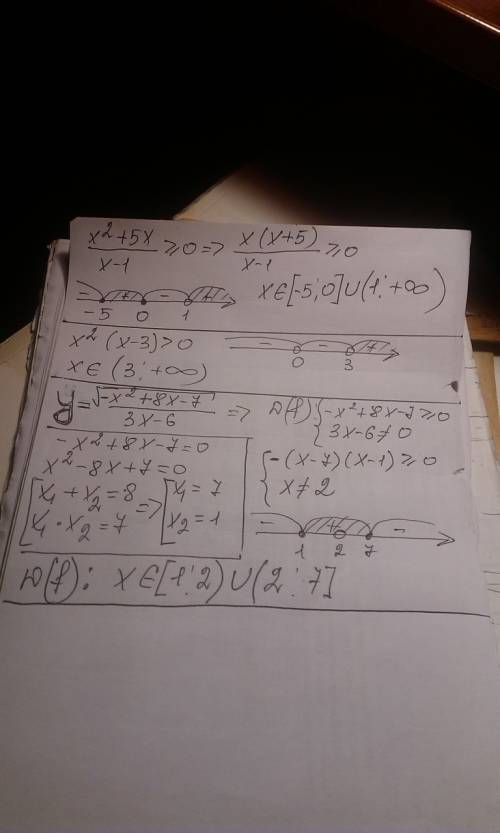 x²+5x/x-1 ≥0 => x(x+5)/x-1 ≥0
- + - +
-5 0 1
x∈[-5;0]∪(1;+∞)
x²(x-3)>0
- - +
0 3
x∈(3;+∞)
y=√-x²+8x-7/3x-6 => D(f){-x²+8x-7≥0
3x-6≠0
-x²+8x-7=0
x²-8x+7=0
[x₁+x₂=8
x₁·x₂=7 => [x₁=7
x₂=1
{-(x-7)(x-1)≥0
x≠2
- + -
1 2 7
D(f): x∈[1;2)∪(2;7]